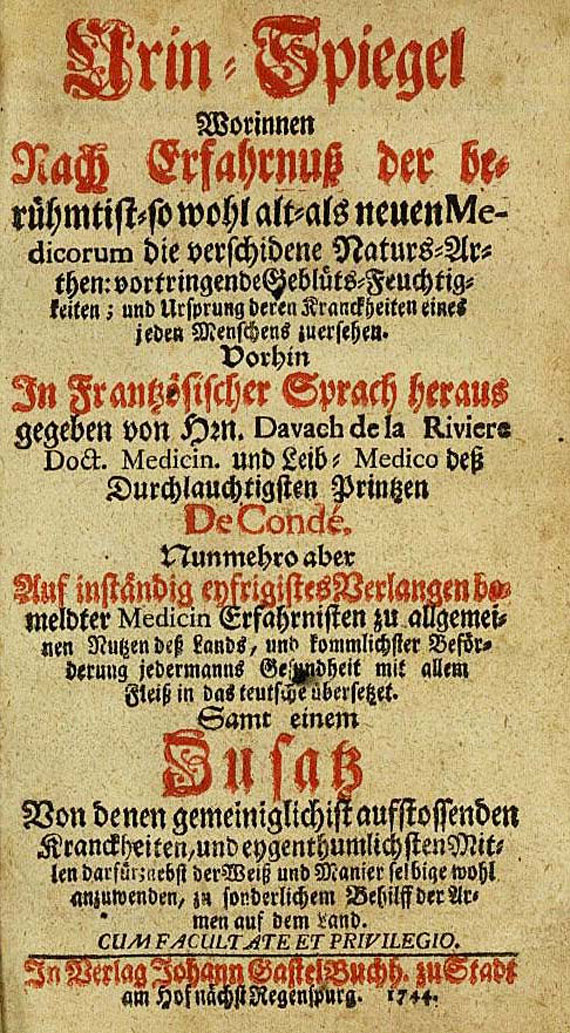 Urin-Spiegel
Worinnen
Nach Erfahrnuß der be-
rühmtist-so wohl alt-als neuen Me-
dicorum die verschidene Naturs-Ar-
then: vortringende Geblüts-Feuchtig-
keiten; und Ursprung deren Kranckheiten eines
jeden Menschens zuersehen.
Vorhin
In Frantzösischer Sprach heraus
gegeben von Hrn. Davach de la Riviere
Doct. Medicin. und Leib- Medico deß
Durchlauchtigsten Printzen
De Condé.
Nunmehro aber
Auf inständig eyfrigistes Verlangen be-
meldter Medicin Erfahrnisten zu allgemei-
nen Nutzen deß Lands, und kommlichster Beför-
derung jedermanns Gesundheit mit allem
Fleiß in das teutsche übersetzet.
Samt einem
Zusatz
Von denen gemeiniglichist aufstossenden
Kranckheiten, und eygenthumlichsten Mit-
len darfür: nebst der Weiß und Manier selbige wohl
anzuwenden, zu sonderlichem Behilff der Ar-
men auf dem Land.
CUM FACULTATE ET PRIVILEGIO.
In Verlag Johann Gastel Buchh. zu Stadt
am Hof nächst Regenspurg. 1744.